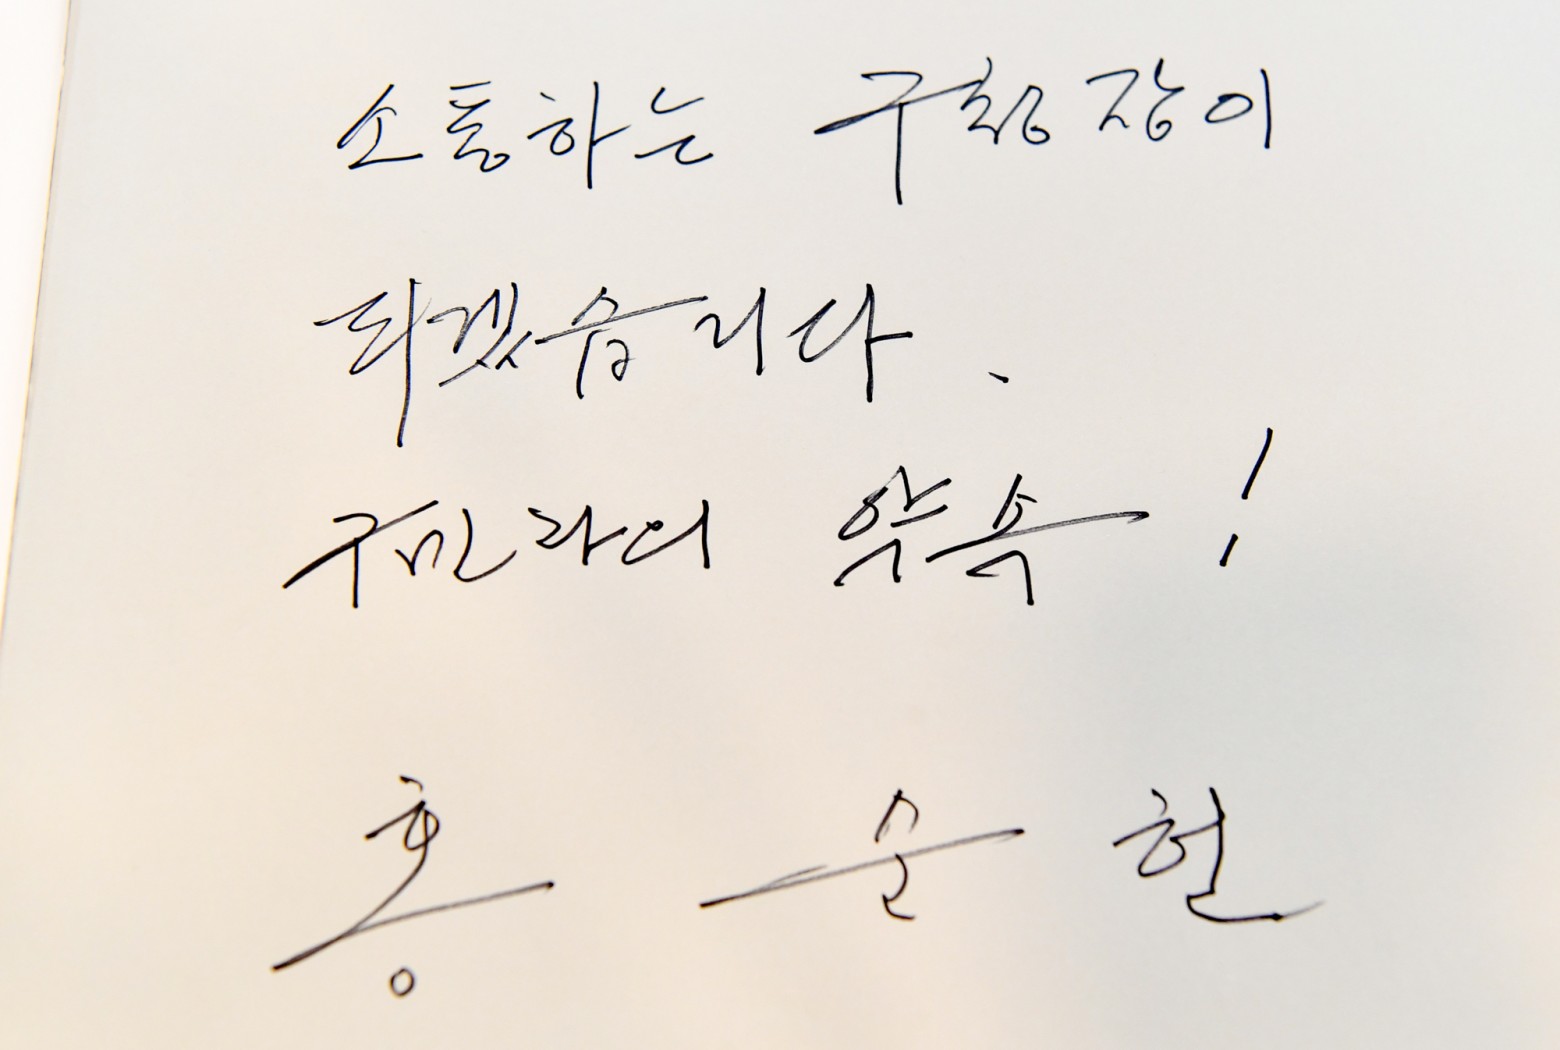 소통하는 구청장이
되겠습니다.
구민과의 약속!
홍 순 헌